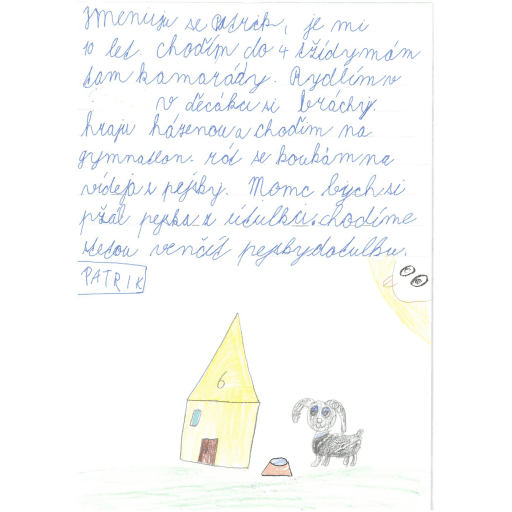 Jmenuju se Patrik, je mi
10 let. chodím do 4 třídy mám
tam kamarády. Bydlím v
v děcáku si bráchy.
hraju házenou a chodím na
gymnastion. rád se koukám na
videja s pejsky. Momc bych si
přál pejska z útulku. chodíme
stetou venčit pejsky do tulku.
PATRIK
6